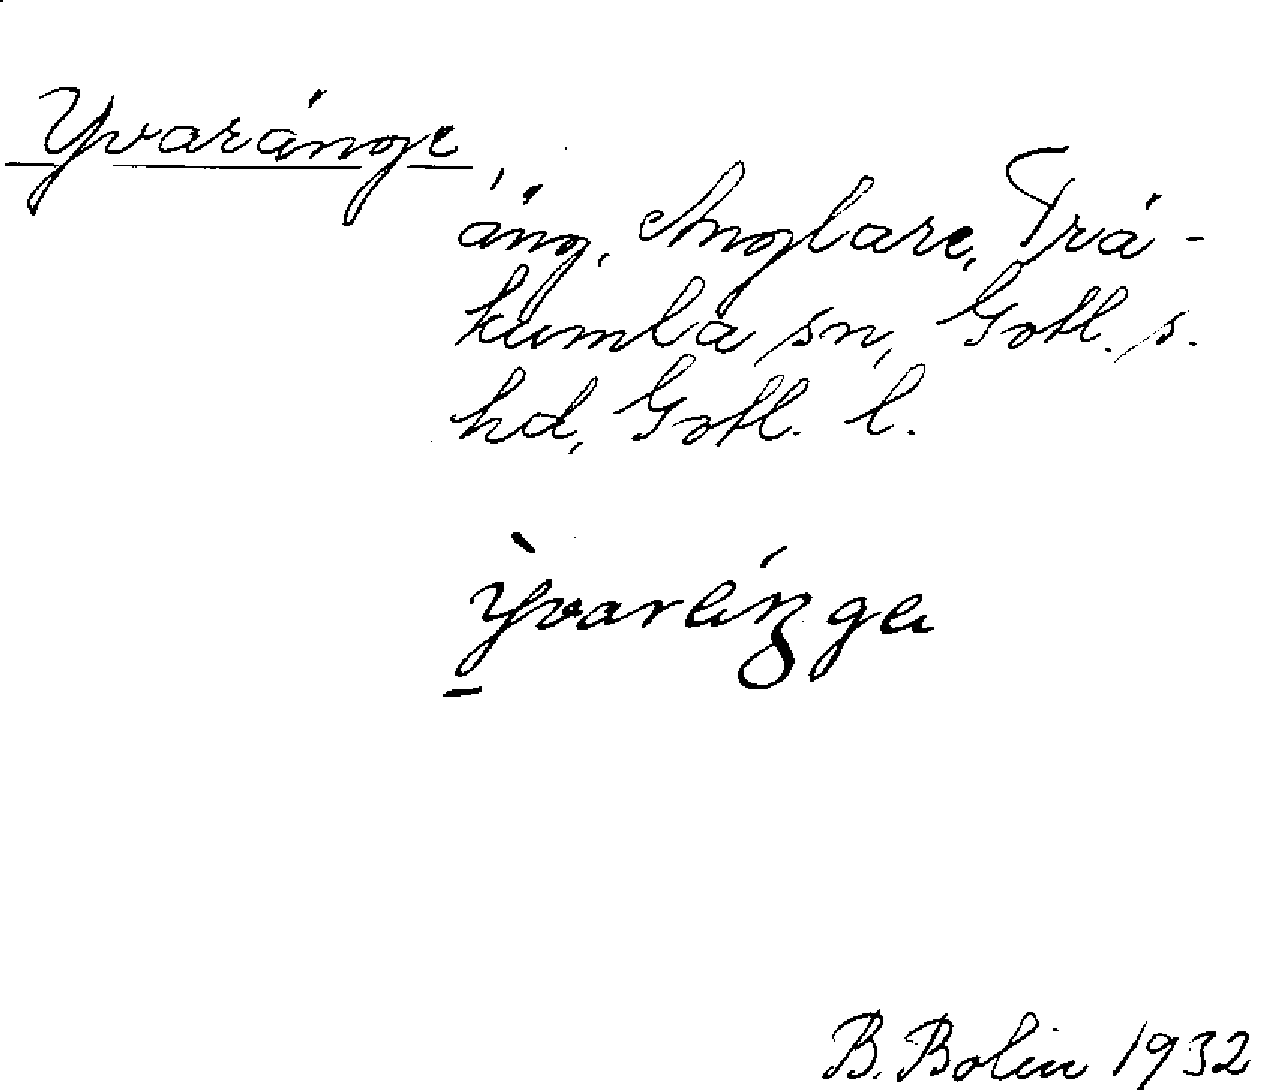 Yvaränge
äng, Anglare, Trä-
kumla sn, Gotl. s.
hd, Gotl. l.
B. Bolin 1932